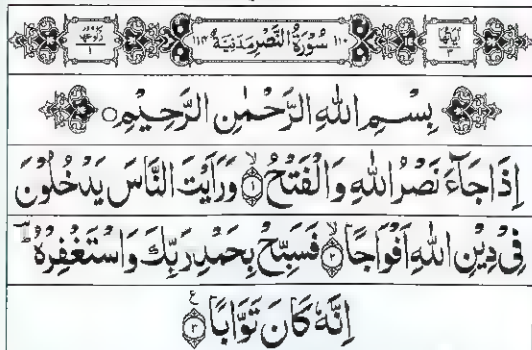 آياتها ٣ ١١٠ سُوْرَةُ النَّصْرِ مَدَنِيَّةٌ ١١٤ ركوعها ١
بِسْمِ اللهِ الرَّحْمٰنِ الرَّحِيْمِ
اِذَا جَآءَ نَصْرُ اللهِ وَالْفَتْحُ ۙ﴿١﴾ وَرَاَيْتَ النَّاسَ يَدْخُلُوْنَ
فِيْ دِيْنِ اللهِ اَفْوَاجًا ۙ﴿٢﴾ فَسَبِّحْ بِحَمْدِ رَبِّكَ وَاسْتَغْفِرْهُ ؕ
اِنَّهٗ كَانَ تَوَّابًا ﴿٣﴾ ع